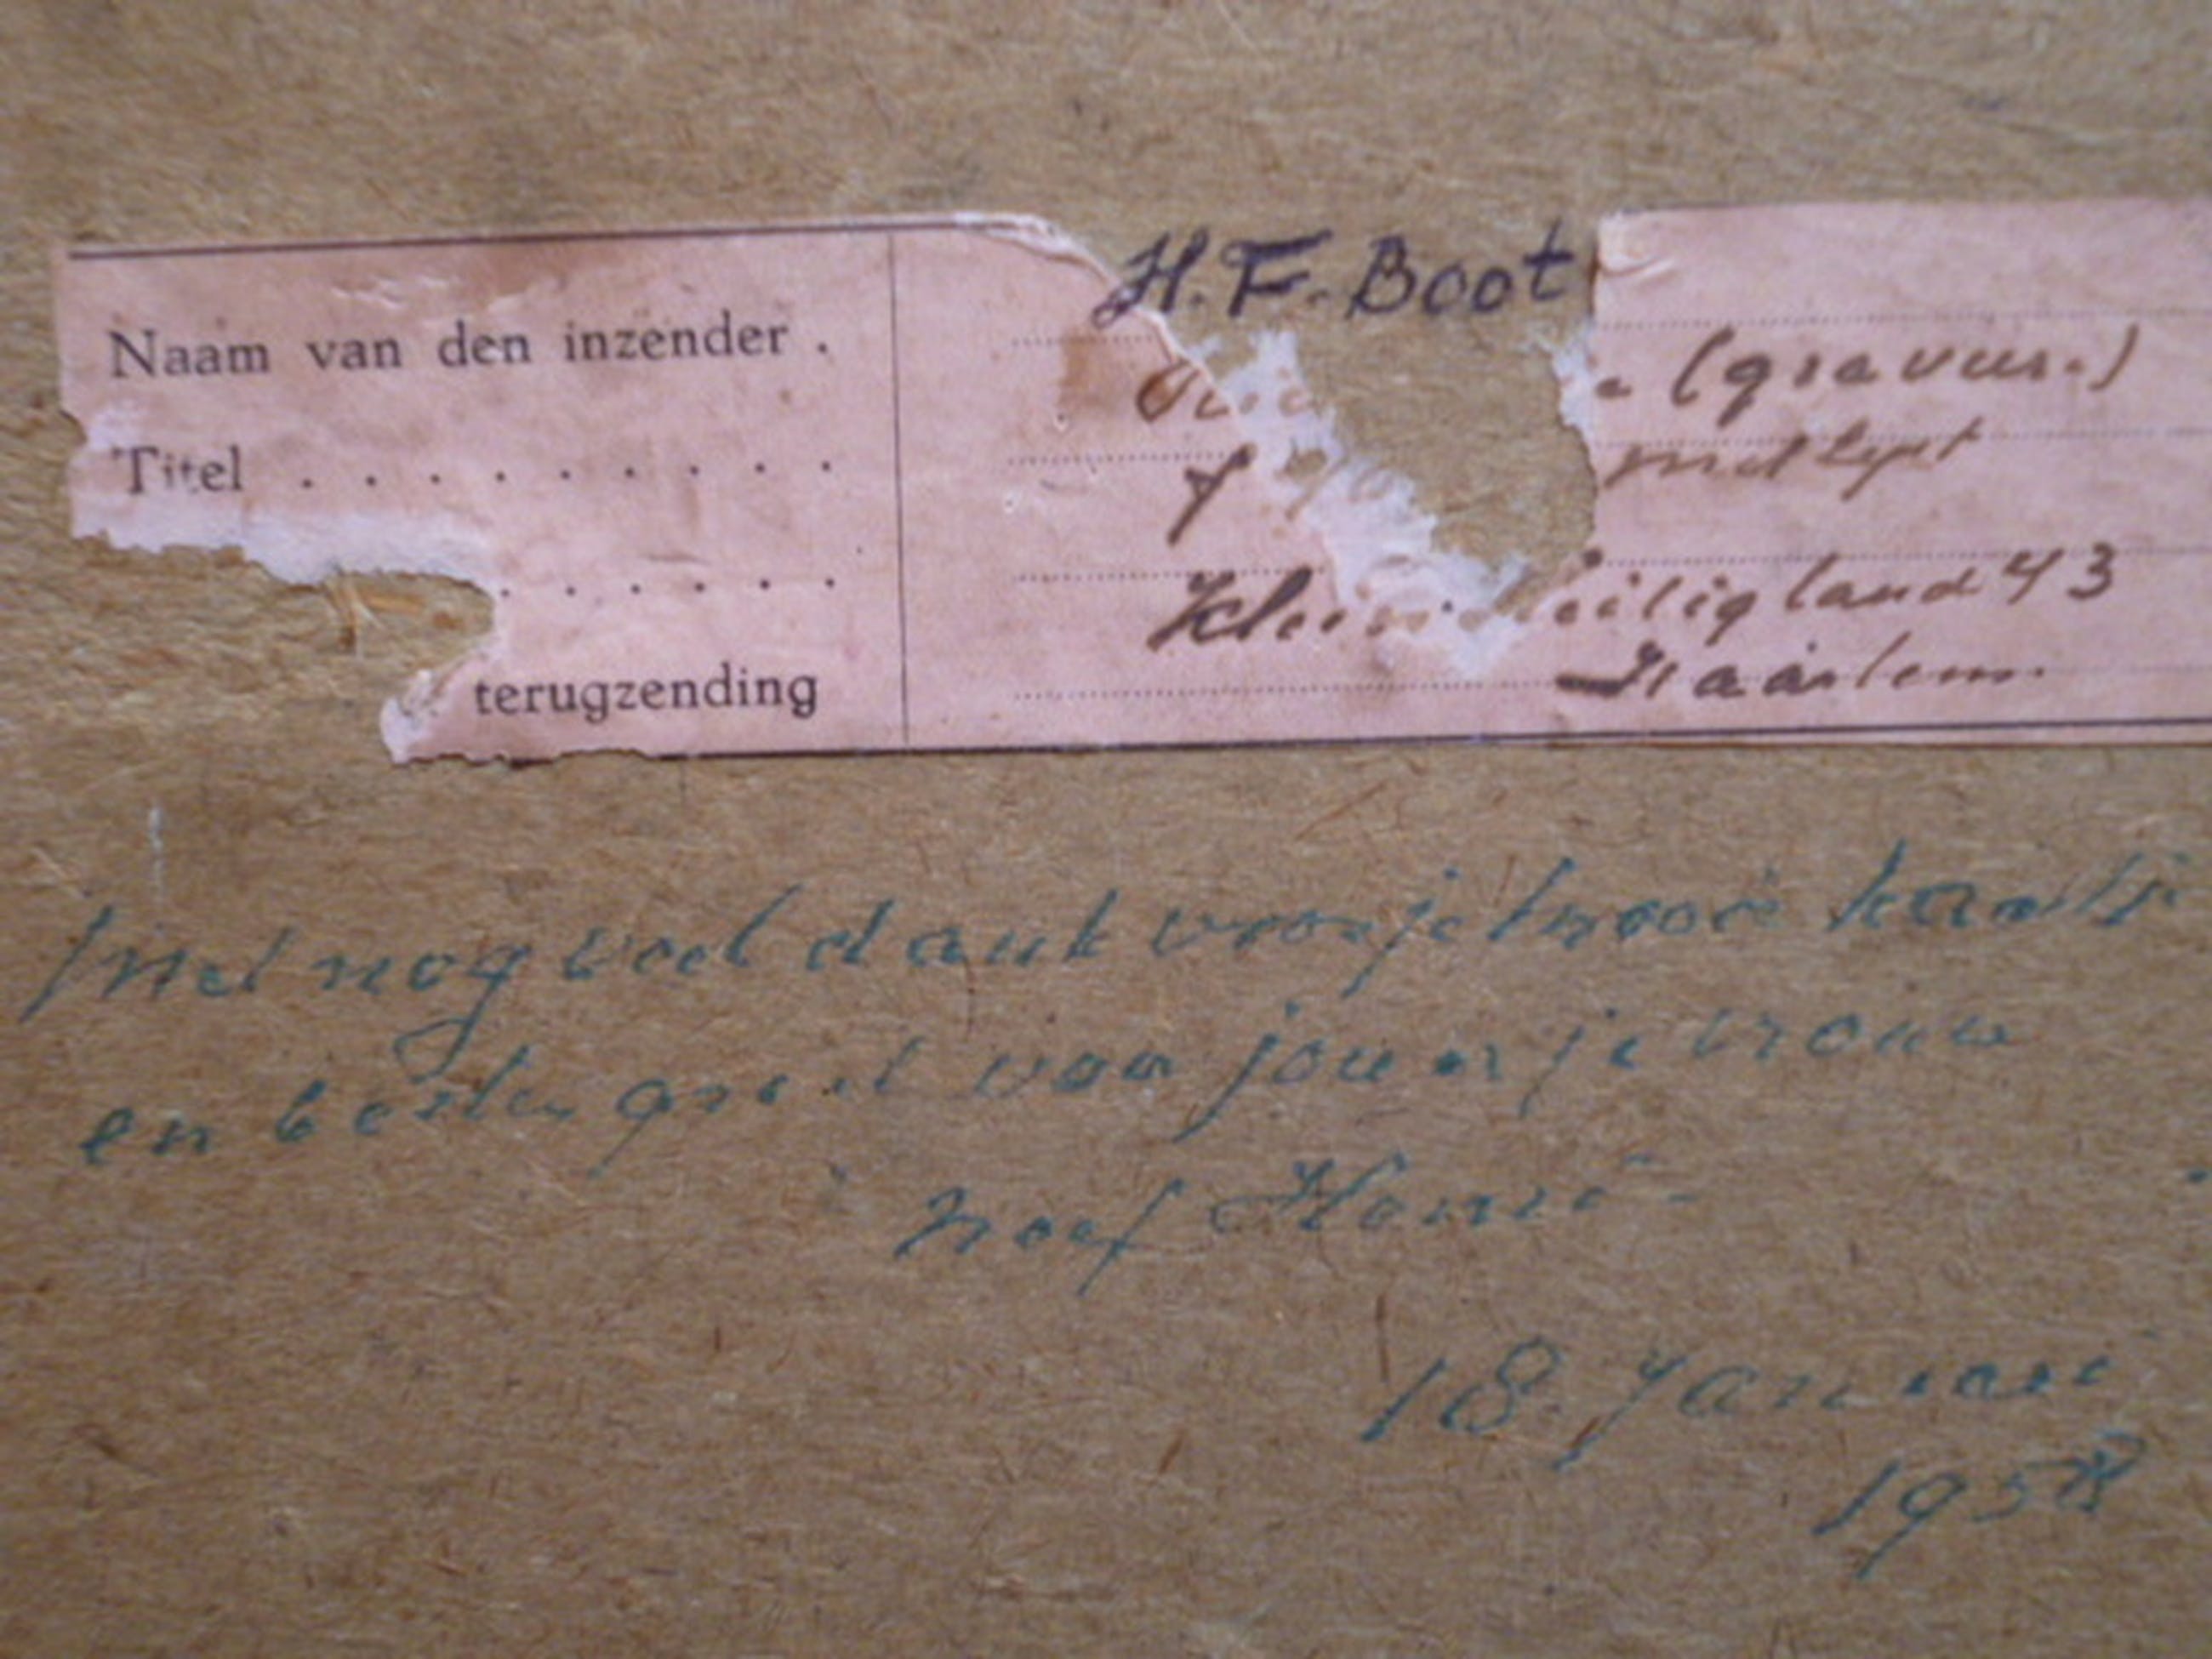 H. F. Boot
Naam van den inzender .
(gravure.)
Titel . . . . . . . . . .
f met lijst
. . . . . .
Klein Heiligland 43
terugzending Haarlem
Met nog veel dank voor je mooie kaartje
en beste groet voor jou en je vrouw
neef Henri
18 Januari
1958